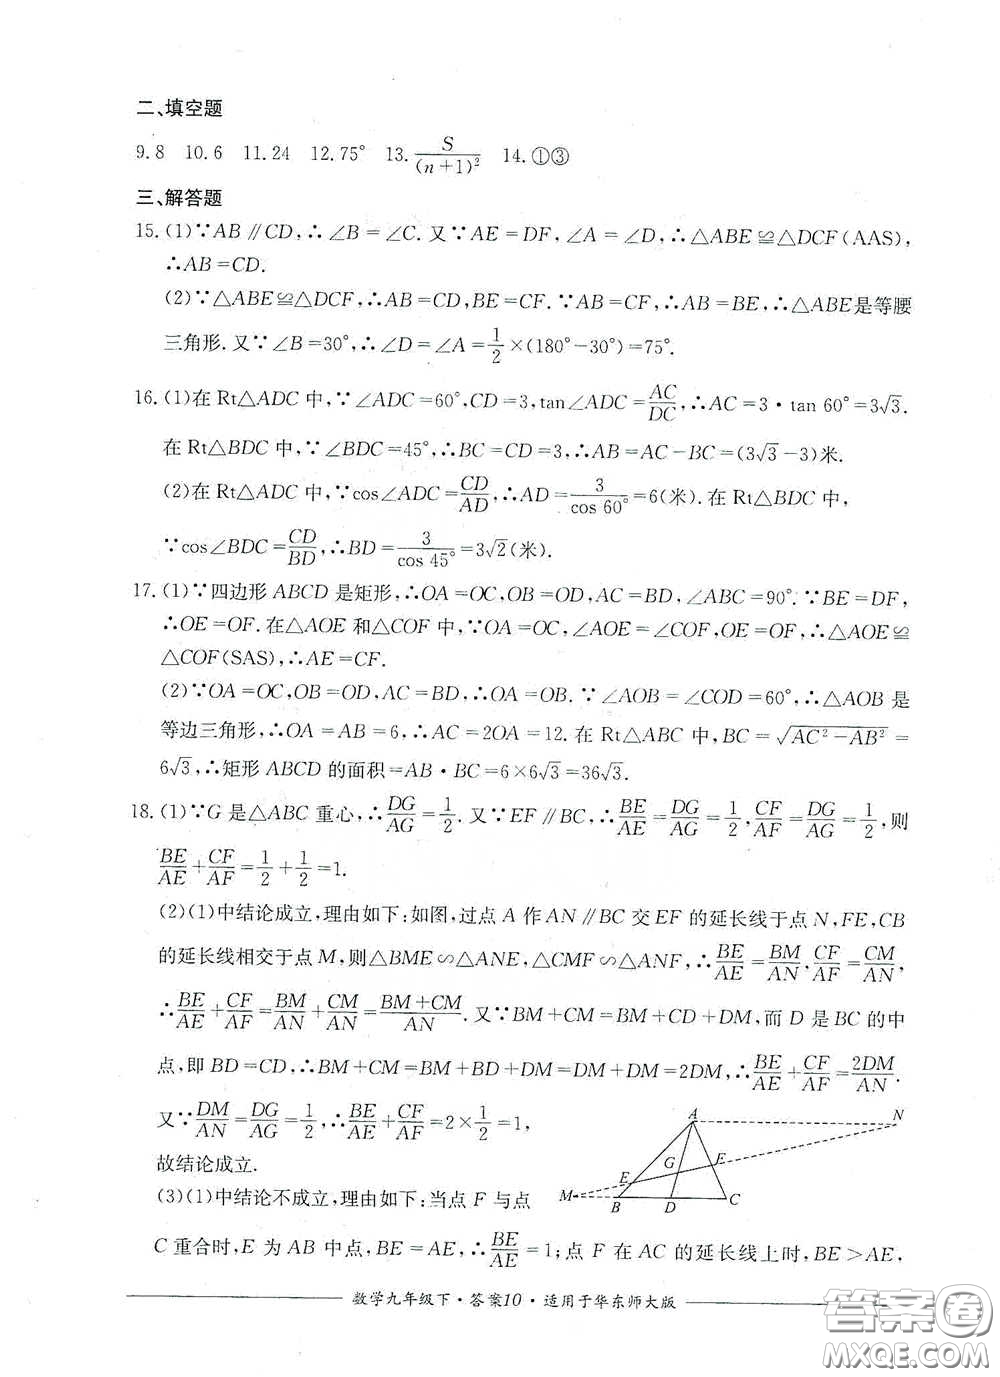 二、填空题
9.8 10.6 11.24 12.75° 13.S/(n+1)² 14.①③
三、解答题
15.(1)∵AB∥CD,∴∠B=∠C.又∵AE=DF,∠A=∠D,∴△ABE≌△DCF(AAS),
∴AB=CD.
(2)∵△ABE≌△DCF,∴AB=CD,BE=CF.∵AB=CF,∴AB=BE,∴△ABE是等腰
三角形.又∵∠B=30°,∴∠D=∠A=1/2×(180°-30°)=75°.
16.(1)在Rt△ADC中,∵∠ADC=60°,CD=3,tan∠ADC=AC/DC,∴AC=3·tan 60°=3√3.
在Rt△BDC中,∵∠BDC=45°,∴BC=CD=3,∴AB=AC-BC=(3√3-3)米.
(2)在Rt△ADC中,∵cos∠ADC=CD/AD,∴AD=3/cos 60°=6(米).在Rt△BDC中,
∵cos∠BDC=CD/BD,∴BD=3/cos 45°=3√2(米).
17.(1)∵四边形ABCD是矩形,∴OA=OC,OB=OD,AC=BD,∠ABC=90°.∵BE=DF,
∴OE=OF.在△AOE和△COF中,∵OA=OC,∠AOE=∠COF,OE=OF,∴△AOE≌
△COF(SAS),∴AE=CF.
(2)∵OA=OC,OB=OD,AC=BD,∴OA=OB.∵∠AOB=∠COD=60°,∴△AOB是
等边三角形,∴OA=AB=6,∴AC=2OA=12.在Rt△ABC中,BC=√(AC²-AB²)=
6√3,∴矩形ABCD的面积=AB·BC=6×6√3=36√3.
18.(1)∵G是△ABC重心,∴DG/AG=1/2.又∵EF∥BC,∴BE/AE=DG/AG=1/2,CF/AF=DG/AG=1/2,则
BE/AE+CF/AF=1/2+1/2=1.
(2)(1)中结论成立,理由如下:如图,过点A作AN∥BC交EF的延长线于点N,FE,CB
的延长线相交于点M,则△BME∽△ANE,△CMF∽△ANF,∴BE/AE=BM/AN,CF/AF=CM/AN,
∴BE/AE+CF/AF=BM/AN+CM/AN=(BM+CM)/AN.又∵BM+CM=BM+CD+DM,而D是BC的中
点,即BD=CD,∴BM+CM=BM+BD+DM=DM+DM=2DM,∴BE/AE+CF/AF=2DM/AN.
又∵DM/AN=DG/AG=1/2,∴BE/AE+CF/AF=2×1/2=1,
故结论成立.
A N
G F
E
M B D C
(3)(1)中结论不成立,理由如下:当点F与点
C重合时,E为AB中点,BE=AE,∴BE/AE=1;点F在AC的延长线上时,BE>AE,
数学九年级下·答案10·适用于华东师大版
答案圈
MXQE.COM